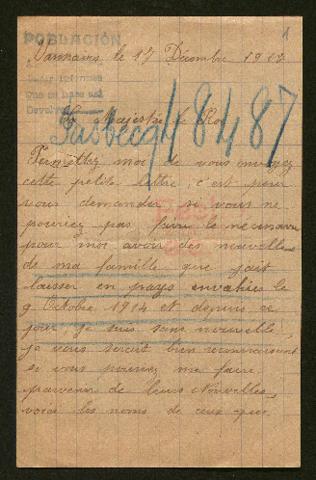 POBLACIÓN
1
le 17 Décembre 1917
Pedir informes
que se hace mal
Majesté le Roi
48487
Permettez moi de vous envoyez
cette petite lettre, c'est pour
vous demander si vous ne
pouriez pas faire le
pour moi avoir des nouvelles
de ma famille que jait
laisser en pays envahies le
9 Octobre 1914 et depuis ce
jour je suis sans nouvelle,
je vous serait bien reconnaissant
si vous pouviez me faire
parvenir de leurs Nouvelles,
voici les noms de ceux que